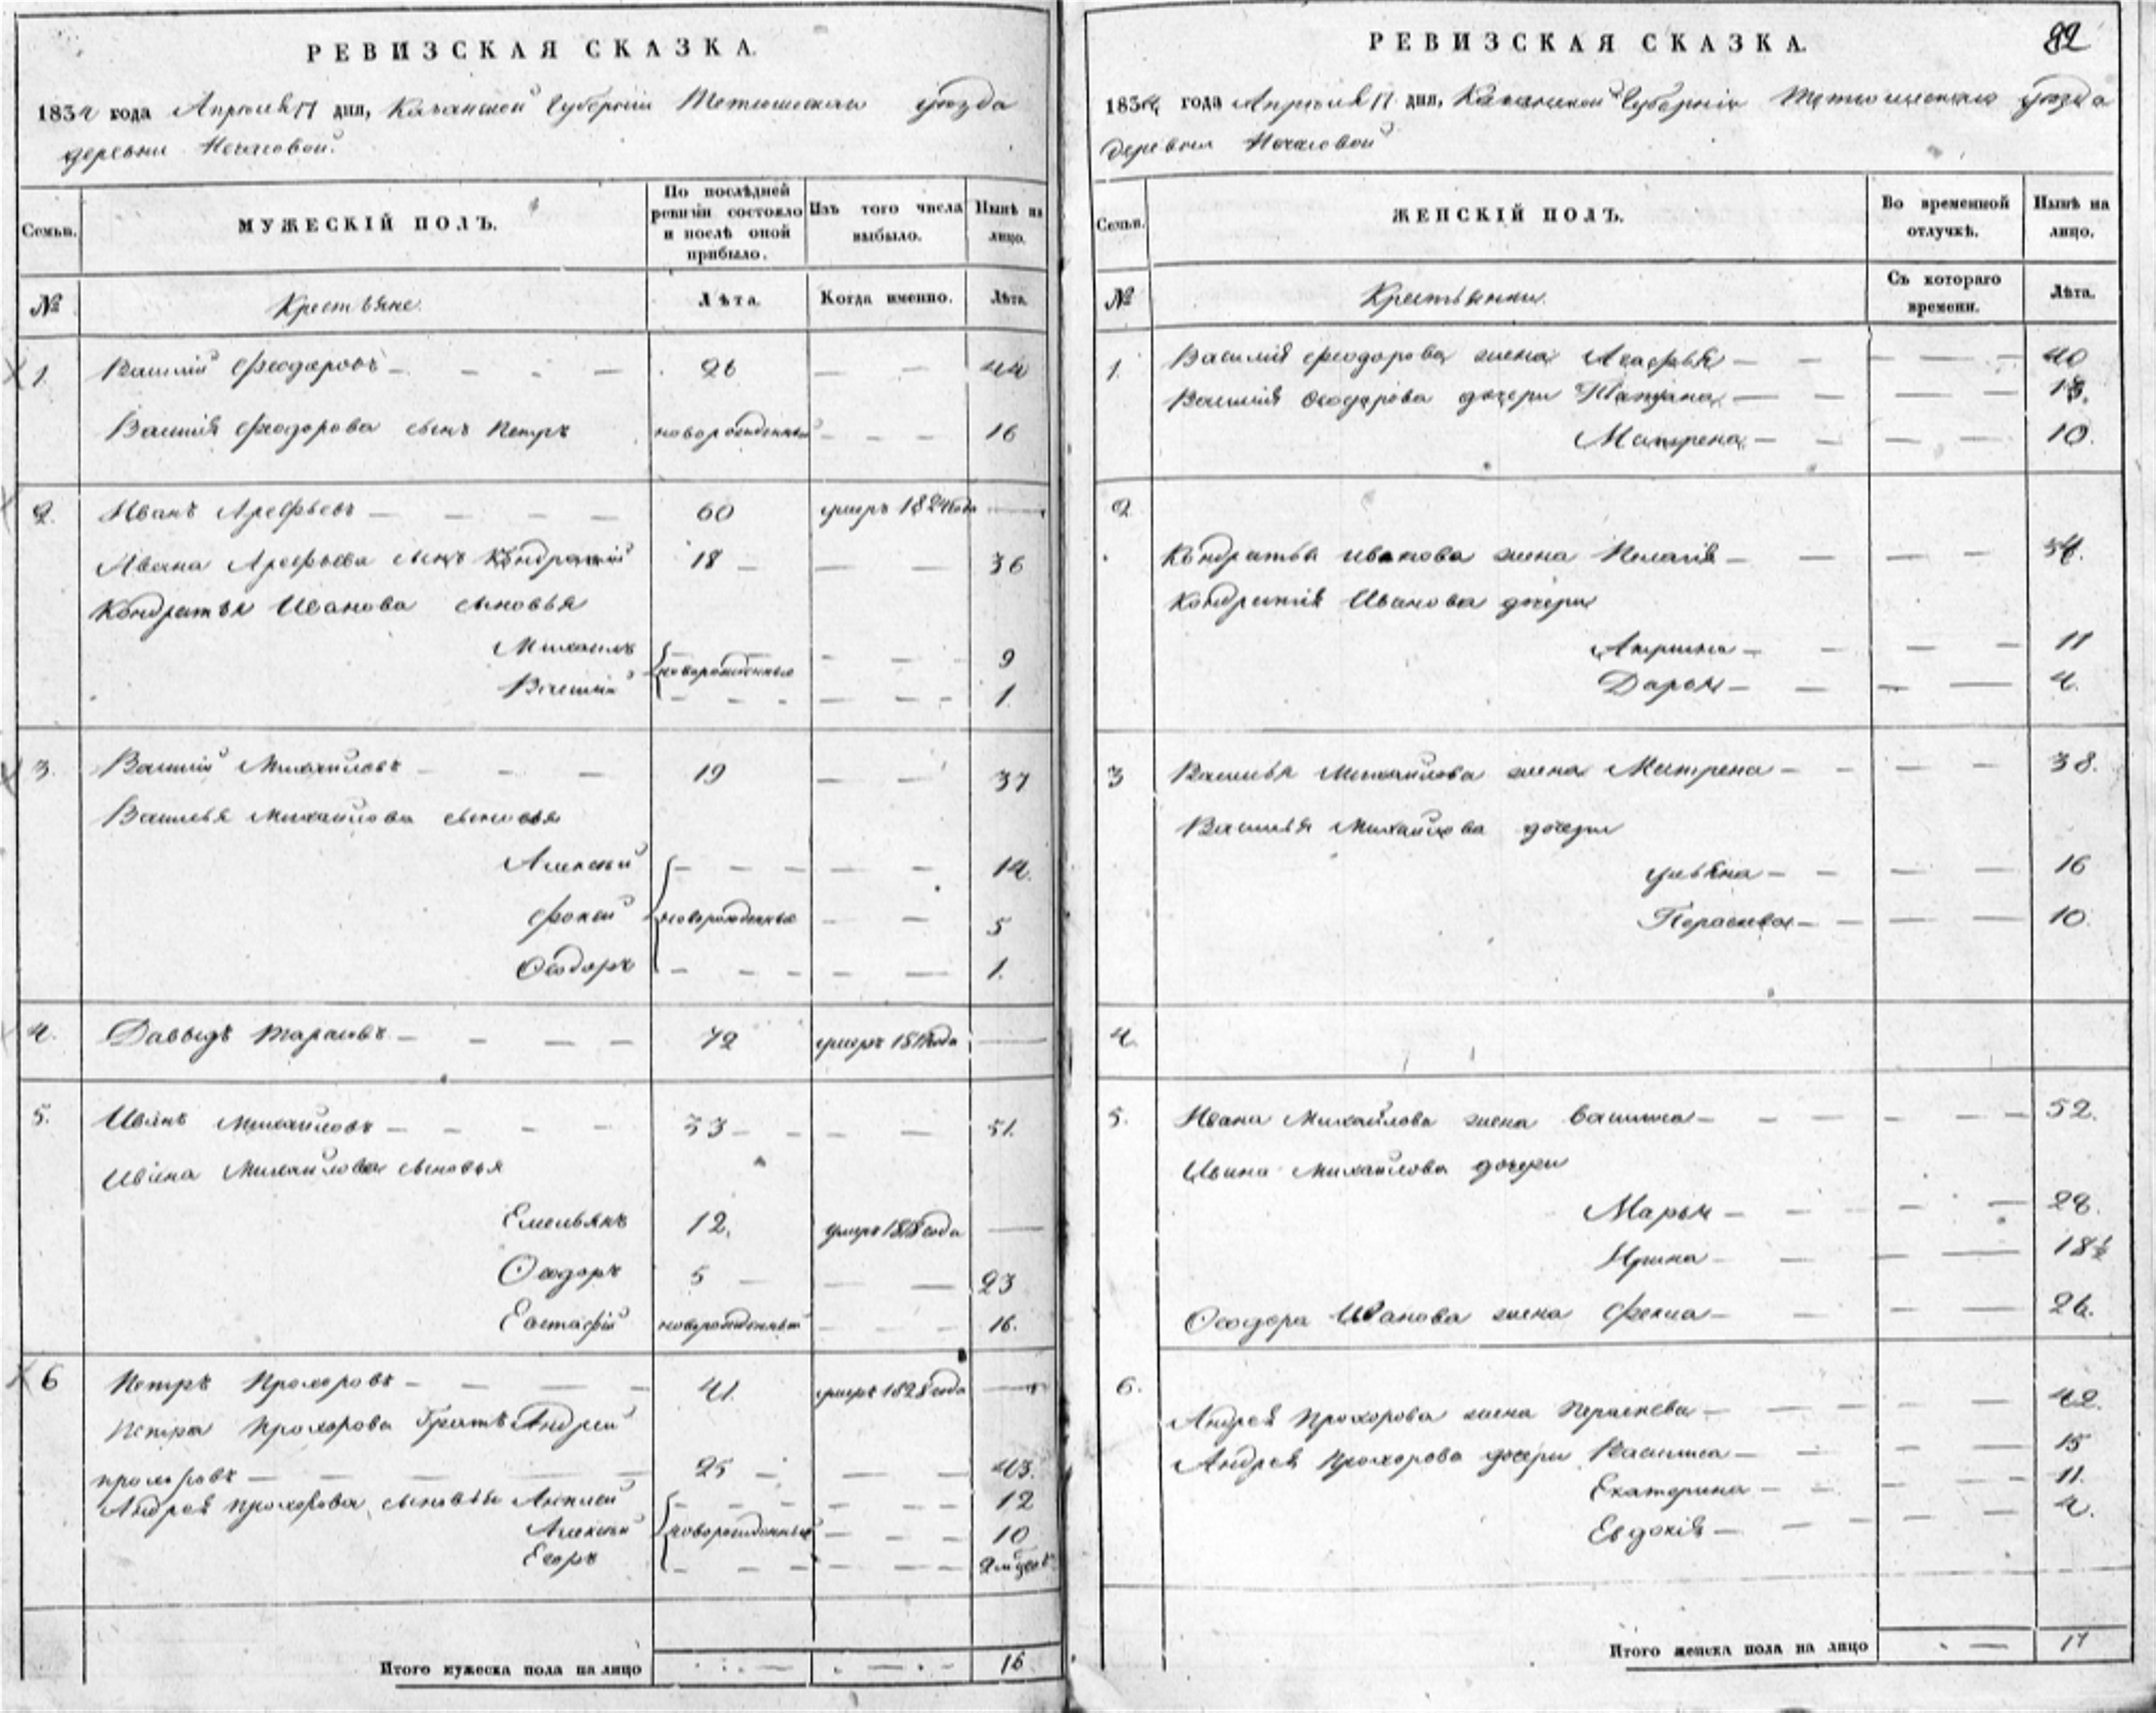 РЕВИЗСКАЯ СКАЗКА.
1834 года Апреля 17 дня, Казанской Губернии Тетюшскаго уезда
деревни
Семьи.
МУЖЕСКІЙ ПОЛЪ.
По послѣдней ревизіи состояло и послѣ оной прибыло.
Изъ того числа выбыло.
Нынѣ на лицо.
№
Крестьяне.
Лѣта.
Когда именно.
Лѣта.
1. Василій Феодоровъ — 26 — 44
Василія Феодорова сынъ Петръ новорожденный — 16
2. Иванъ Арефьевъ — 60 умеръ 1824 года —
Ивана Арефьева сынъ Кондратій 18 — 36
Кондратья Иванова сыновья
Михаилъ новорожденные — 9
Василій — 1.
3. Василій Михайловъ — 19 — 37
Василья Михайлова сыновья
Алексѣй — 14.
Фокей новорожденные — 5
Ѳеодоръ — 1.
4. Давыдъ Тарасовъ — 72 умеръ года —
5. Иванъ Михайловъ — 33 — 51.
Ивана Михайлова сыновья
Емельянъ 12. умеръ 1818 года —
Ѳеодоръ 5 — 23
Евстафій новорожденный — 16.
6 Петръ Прохоровъ — 41. умеръ 1828 года —
Петра Прохорова братъ Андрей
прохоровъ — 25 — 43.
Андрея прохорова сыновья — 12
Алексѣй новорожденные — 10
Егоръ — 2 мѣсяцовъ
Итого мужеска пола на лицо — 16
РЕВИЗСКАЯ СКАЗКА.
82
1834 года Апреля 17 дня, Казанской Губерніи Тетюшскаго уезда
деревни
Семьи.
ЖЕНСКІЙ ПОЛЪ.
Во временной отлучкѣ.
Нынѣ на лицо.
№
Крестьянки.
Съ котораго времени.
Лѣта.
1. Василія Феодорова жена Агафья — 40
Василія Ѳеодорова дочери Татьяна — 13.
Матрена — 10.
2
Кондратья Иванова жена Пелагія — 34.
Кондратія Иванова дочери
— 11
Дарья — 4.
3 Василья Михайлова жена Матрена — 38.
Василья Михайлова дочери
ульяна — 16
Параскева — 10.
4
5. Ивана Михайлова жена Васшиса — 52.
Ивана Михайлова дочери
Марья — 22.
Ирина — 18½
Ѳеодора Иванова жена Фекла — 26.
6. Андрея Прохорова жена Параскева — 42.
Андрея Прохорова дочери Василиса — 15
Екатерина — 11.
Евдокія — 4.
Итого женска пола на лицо — 17